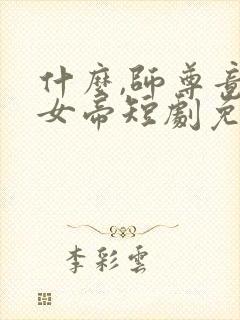 什麼,師尊竟
女帝短劇免
李彩雲